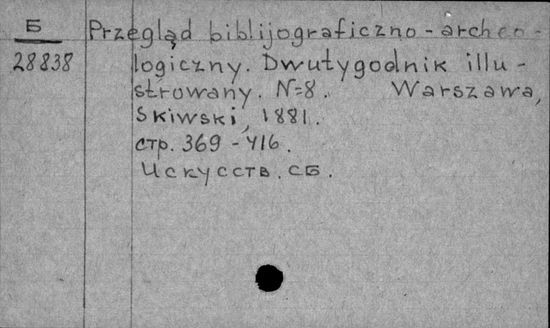 Б
28838
Przegląd biblijograficzno-archeo-
logiczny. Dwutygodnik illu-
strowany. N=8. Warszawa,
Skiwski, 1881.
стр. 369-416.
Искусств. СБ.